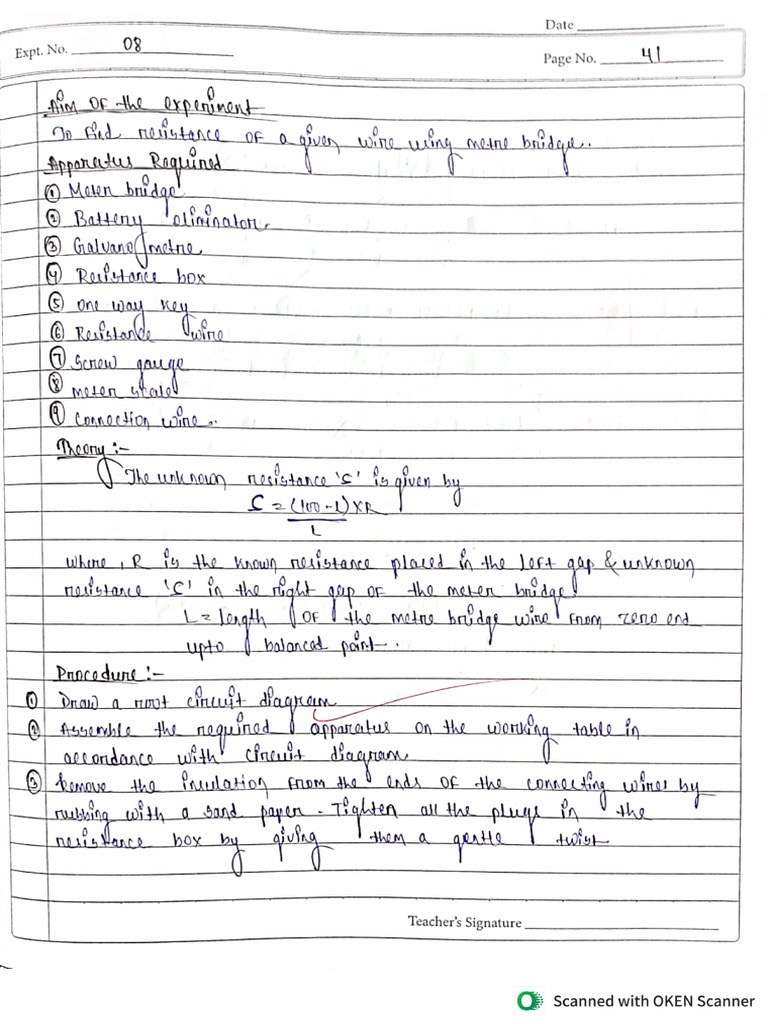 Date
Expt. No. 08
Page No. 41
Aim OF the experiment
To find resistance OF a given wire using metre bridge..
Apparatus Required
① Meter bridge
② Battery eliminator.
③ Galvano metre
④ Resistance box
⑤ One way key
⑥ Resistance wire
⑦ Screw gauge
⑧ meter scale
⑨ Connection wire..
Theory :-
The unknown resistance 'S' is given by
S = (100-L)XR
L
where, R is the known resistance placed in the left gap & unknown
resistance 'S' in the right gap of the meter bridge
L = length OF the metre bridge wire from zero end
upto balanced point.
Procedure :-
① Draw a root circuit diagram
② Assemble the required apparatus on the working table in
accordance with circuit diagram
③ Remove the insulation from the ends of the connecting wires by
rubbing with a sand paper. Tighten all the plugs in the
resistance box by giving them a gentle twist
Teacher's Signature
Scanned with OKEN Scanner